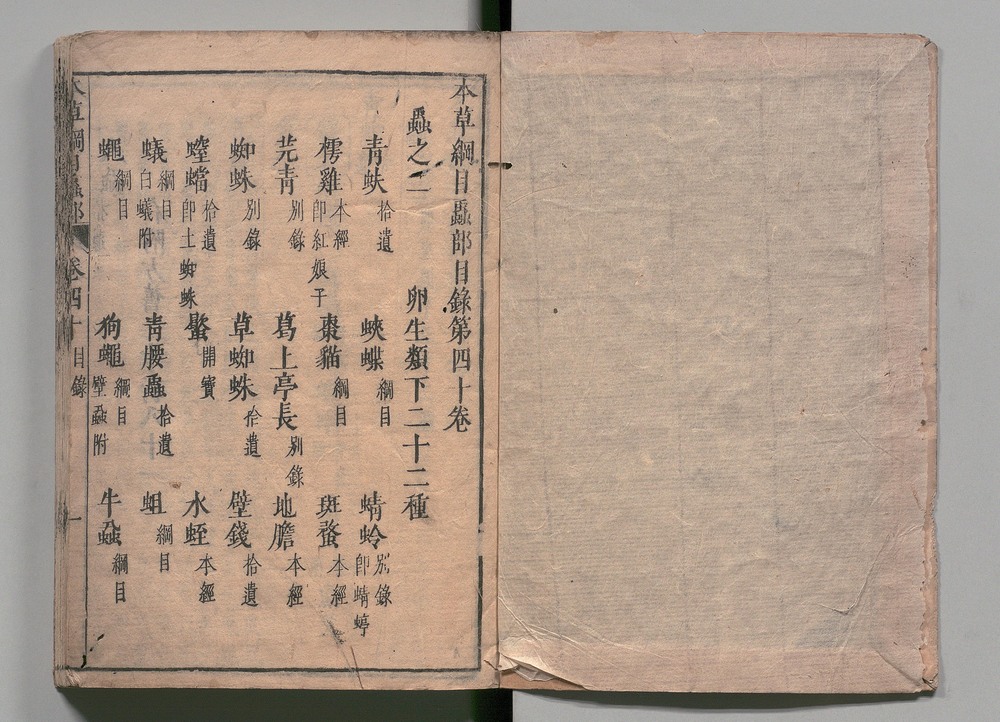 本草綱目蟲部目錄第四十卷
蟲之二 卵生類下二十二種
青蚨 拾遺 蛺蝶 綱目 蜻蛉 別錄 即蜻蝏
樗雞 本經 即紅娘子 棗貓 綱目 斑蝥 本經
芫青 別錄 葛上亭長 別錄 地膽 本經
蜘蛛 別錄 草蜘蛛 拾遺 壁錢 拾遺
螲蟷 拾遺 即土蜘蛛 蠍 開寶 水蛭 本經
蟻 綱目 白蟻附 青腰蟲 拾遺 蛆 綱目
蠅 綱目 狗蠅 綱目 壁蝨附 牛蝨 綱目
本草綱目蟲部 卷四十 目錄 一